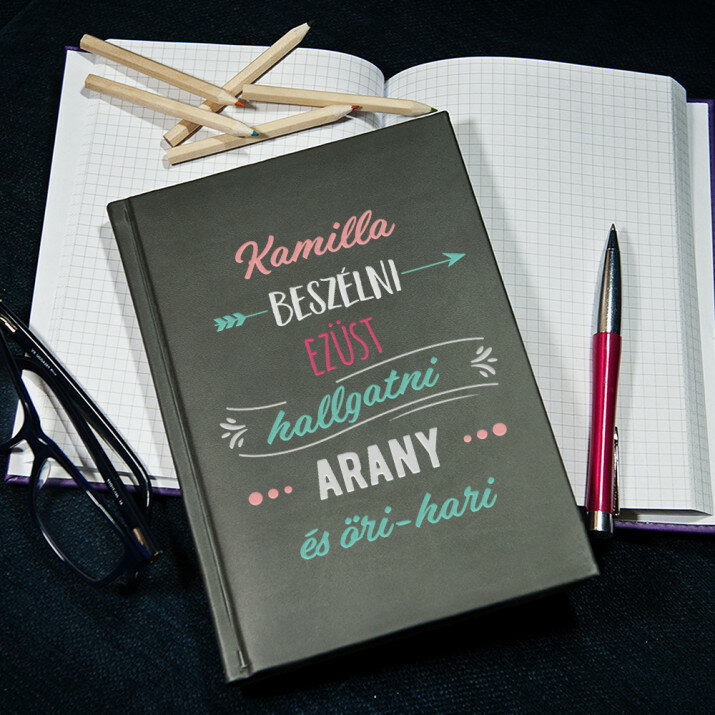 Kamilla
BESZÉLNI
EZÜST
hallgatni
ARANY
és öri-hari